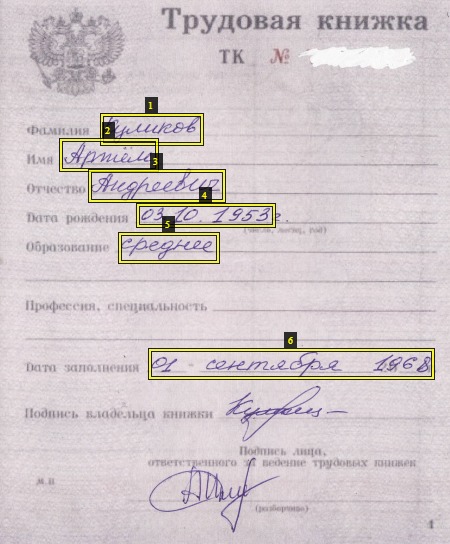 Трудовая книжка
ТК №
1
Фамилия Куликов
2
Имя Артём
3
Отчество Андреевич
4
Дата рождения 03.10.1953г.
(число, месяц, год)
5
Образование среднее
Профессия, специальность
6
Дата заполнения 01 сентября 1968
Подпись владельца книжки
Подпись лица,
ответственного за ведение трудовых книжек
м.п.
(разборчиво)
1